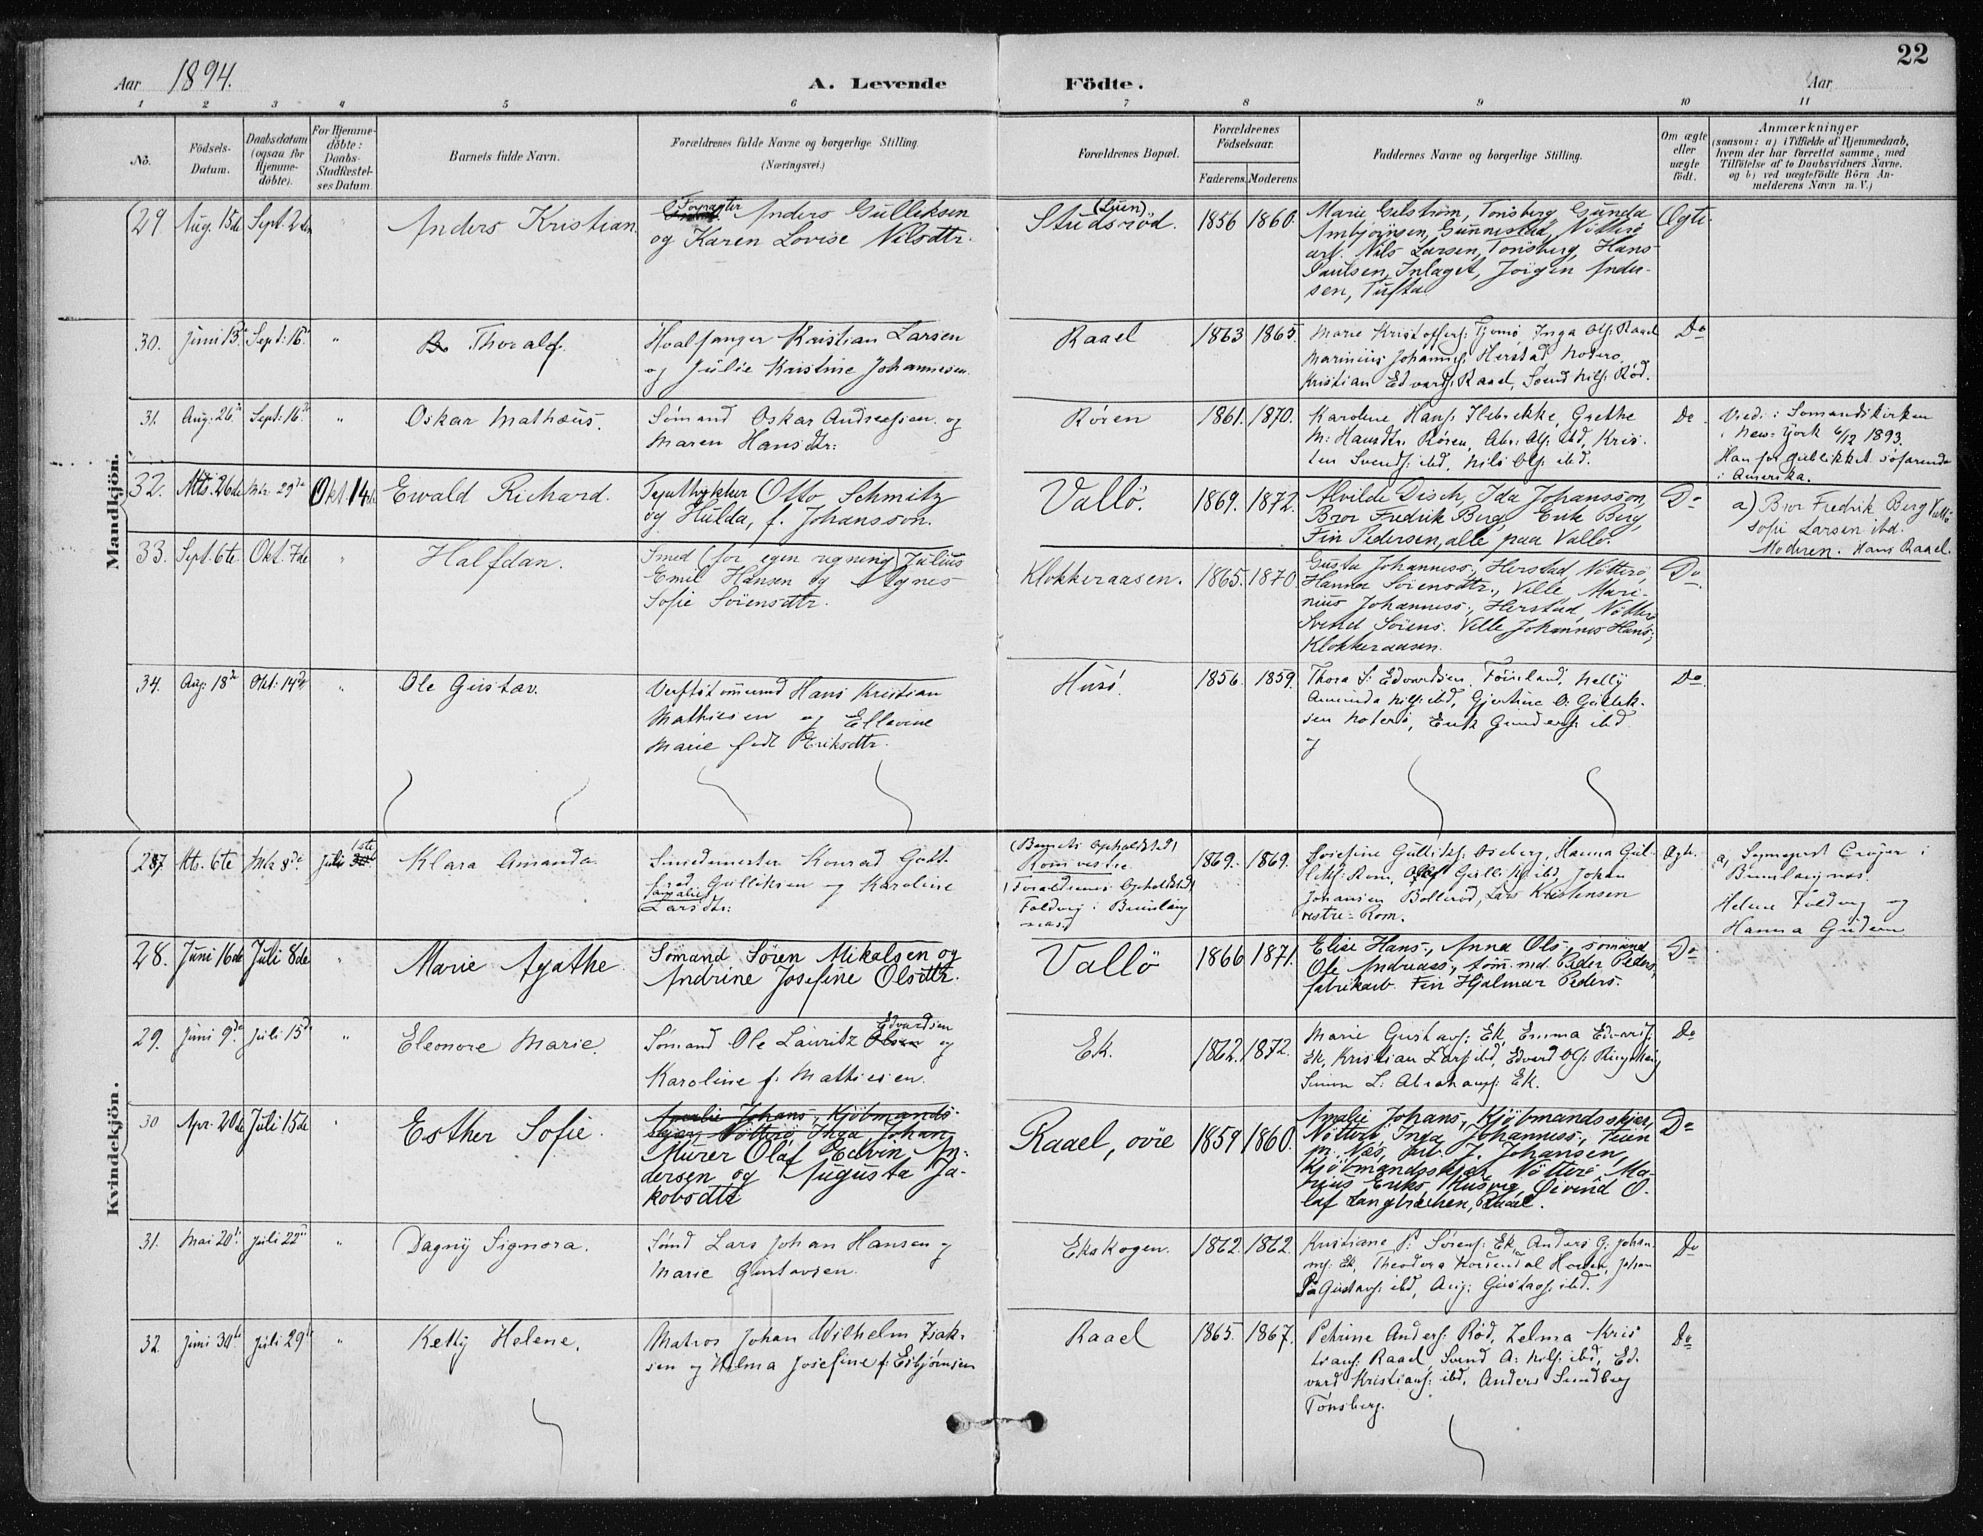 22
Aar 1894.
A. Levende Födte.
Aar
1 2 3 4 5 6 7 8 9 10 11
No.
Födsels-Datum.
Daabsdatum (ogsaa for Hjemme-döbte).
For Hjemme-döbte: Daabs-Stadfæstel-ses Datum.
Barnets fulde Navn.
Forældrenes fulde Navne og borgerlige Stilling. (Næringsvei.)
Forældrenes Bopæl.
Forældrenes Födselsaar.
Faderens. Moderens.
Faddernes Navne og borgerlige Stilling.
Om ægte eller uægte födt.
Anmærkninger
(saasom: a) i Tilfælde af Hjemmedaab,
hvem der har forrettet samme, med
Tilföielse af to Daabsvidners Navne.
og b) ved uægtefödte Börn An-
melderens Navn m. V.)
Mandkjön.
29 Aug. 15de Sept. 2den Anders Kristian.
Forpagter Anders Gulliksen
og Karen Lovise Nilsdtr.
Studsröd. 1856 1860
Tönsberg, Gunda
Ambjörnsen, Gunnestad, Nötterö
arb. Nils Larsen, Tönsberg, Hans
Paulsen, Inlaget, Jörgen Ander-
sen, Tufta
Ægte
30. Juni 13de Sept: 16de " Thoralf.
Hvalfanger Kristian Larsen
og Julie Kristine Johannesen.
Raael 1863 1865.
Marie Kristoffers: Tjømø, Inga Ols: Raael
Marinius Johanns: Herstad Noterø,
Kristian Edvards: Raael, Svend Nils: Rød.
Do
31. Aug: 26de Sept: 16de " Oskar Mathæus.
Sømand Oskar Andreassen og
Maren Hansdtr:
Røren 1861. 1870.
Karoline Hans: Ilebrekke, Grethe
M: Hansdtr. Røren, Abr: Ols: ibd, Kris-
ten Svends: ibd, Nils Ols: ibd.
Do
Vied i Sømandskirken
i New-York 6/12 1893.
i Amerika.
32. Mts. 26de Mts 29de Okt. 14de Ewald Richard.
Otto Schmitz
og Hulda, f. Johansson.
Vallö. 1869. 1872.
Alvilde Disch, Ida Johansson,
Bror Fredrik Berg, Erik Berg,
Fin Pedersen, alle paa Vallö.
Do
a) Bror Fredrik Berg Vallö
Sofie Larsen ibd.
Moderen. Hans Raael.
33. Sept. 6te Okt. 7de " Halfdan.
Smed (for egen regning) Julius
Emil Hansen og Agnes
Sofie Sörensdtr.
Klokkeraasen. 1865. 1870
Gusta Johanness., Herstad Nötterö,
Hanna Sörensdtr., Ville, Mari-
nius Johanness., Herstad Nötterö
Svend Sörens. Ville Johannes Hans.,
Klokkeraasen.
Do
34. Aug: 18de Okt: 14de " Ole Gustav.
Verftstømmerm Hans Kristian
Mathiesen og Ellevine
Marie født Eriksdtr.
Husö. 1856. 1859.
Thora S: Edvardsen. Föinland, Nelly
Amunda Nils: ibd, Gjertine O: Gullik-
sen Noterö, Erik Gunders: ibd
og
Do
Kvindekjön.
27. Mts. 6te Mts 8de Juli 1ste Klara Amanda.
Smedemester Konrad Gott-
fred Gulliksen og Karoline
Amalie Larsdtr:
(Barnets Opholdsted)
Rom vestre
(Forældrenes Opholdsted)
Foldvig i Brunlang
næs)
1869. 1869.
Josefine Gulliks: Oseberg, Hanna Gul-
liks: Rom, Olaf Gulliks: ibd, Johan
Johansen Bollerød, Lars Kristensen
vestre Rom.
Ægte.
a) Sogneprest Crøger i
Brunlangnæs.
Helene Foldvig og
Hanna
28. Juni 16de Juli 8de " Marie Agathe.
Sömand Sören Mikalsen og
Andrine Josefine Olsdtr.
Vallö 1866 1871.
Elise Hans., Anna Ols., sömand
Ole Andreass., tömmd. Peder Peders,
fabrikarb. Fin Hjalmar Peders.
Do
29. Juni 9de Juli 15de " Eleonore Marie.
Sømand Ole Lauritz Olsen Edvardsen og
Karoline f: Mathiesen.
Ek. 1862. 1872.
Marie Gustavs: Ek, Emma Edvards:
Ek, Kristian Lars: ibd, Edvard Ols: Ringshaug
Simon L: Abrahams: Ek.
Do
30 Apr. 20de Juli 15de Esther Sofie.
Amalie Johans., Kjöbmands-
skjær, Nötterö, Inga Johan
Murer Olaf Edvin An-
dersen og Augusta Ja-
kobsdtr
Raael, övre 1859 1860.
Amalie Johans., Kjöbmandsskjær,
Nötterö, Inga Johanness., Teien
pr. Næs, Arb. J. Johansen,
Kjöbmandsskjær Nötterö, Ma-
rius Eriks. Husvig, Öivind O-
laf Langbrekken, Raael.
Do
31. Mai 20de Juli 22de " Dagny Signora.
Sømd Lars Johan Hansen og
Marie Gustavsen.
Ekskogen. 1862. 1862.
Kristiane P: Sørens: Ek, Anders G: Johan-
ns: Ek, Theodora Horten, Johan
Gustavs: ibd, Aug: Gustavs: ibd.
Do
32. Juni 30te Juli 29de " Ketty Helene.
Matros Johan Wilhelm Isak-
sen og Hilma Josefine f: Esbjørnsen
Raael 1865. 1867.
Petrine Anders: Rød, Zelma Kris-
tians: Raael, Svend A: Nils: ibd, Ed-
vard Kristians: ibd, Anders Sundberg
Tönsberg.
Do